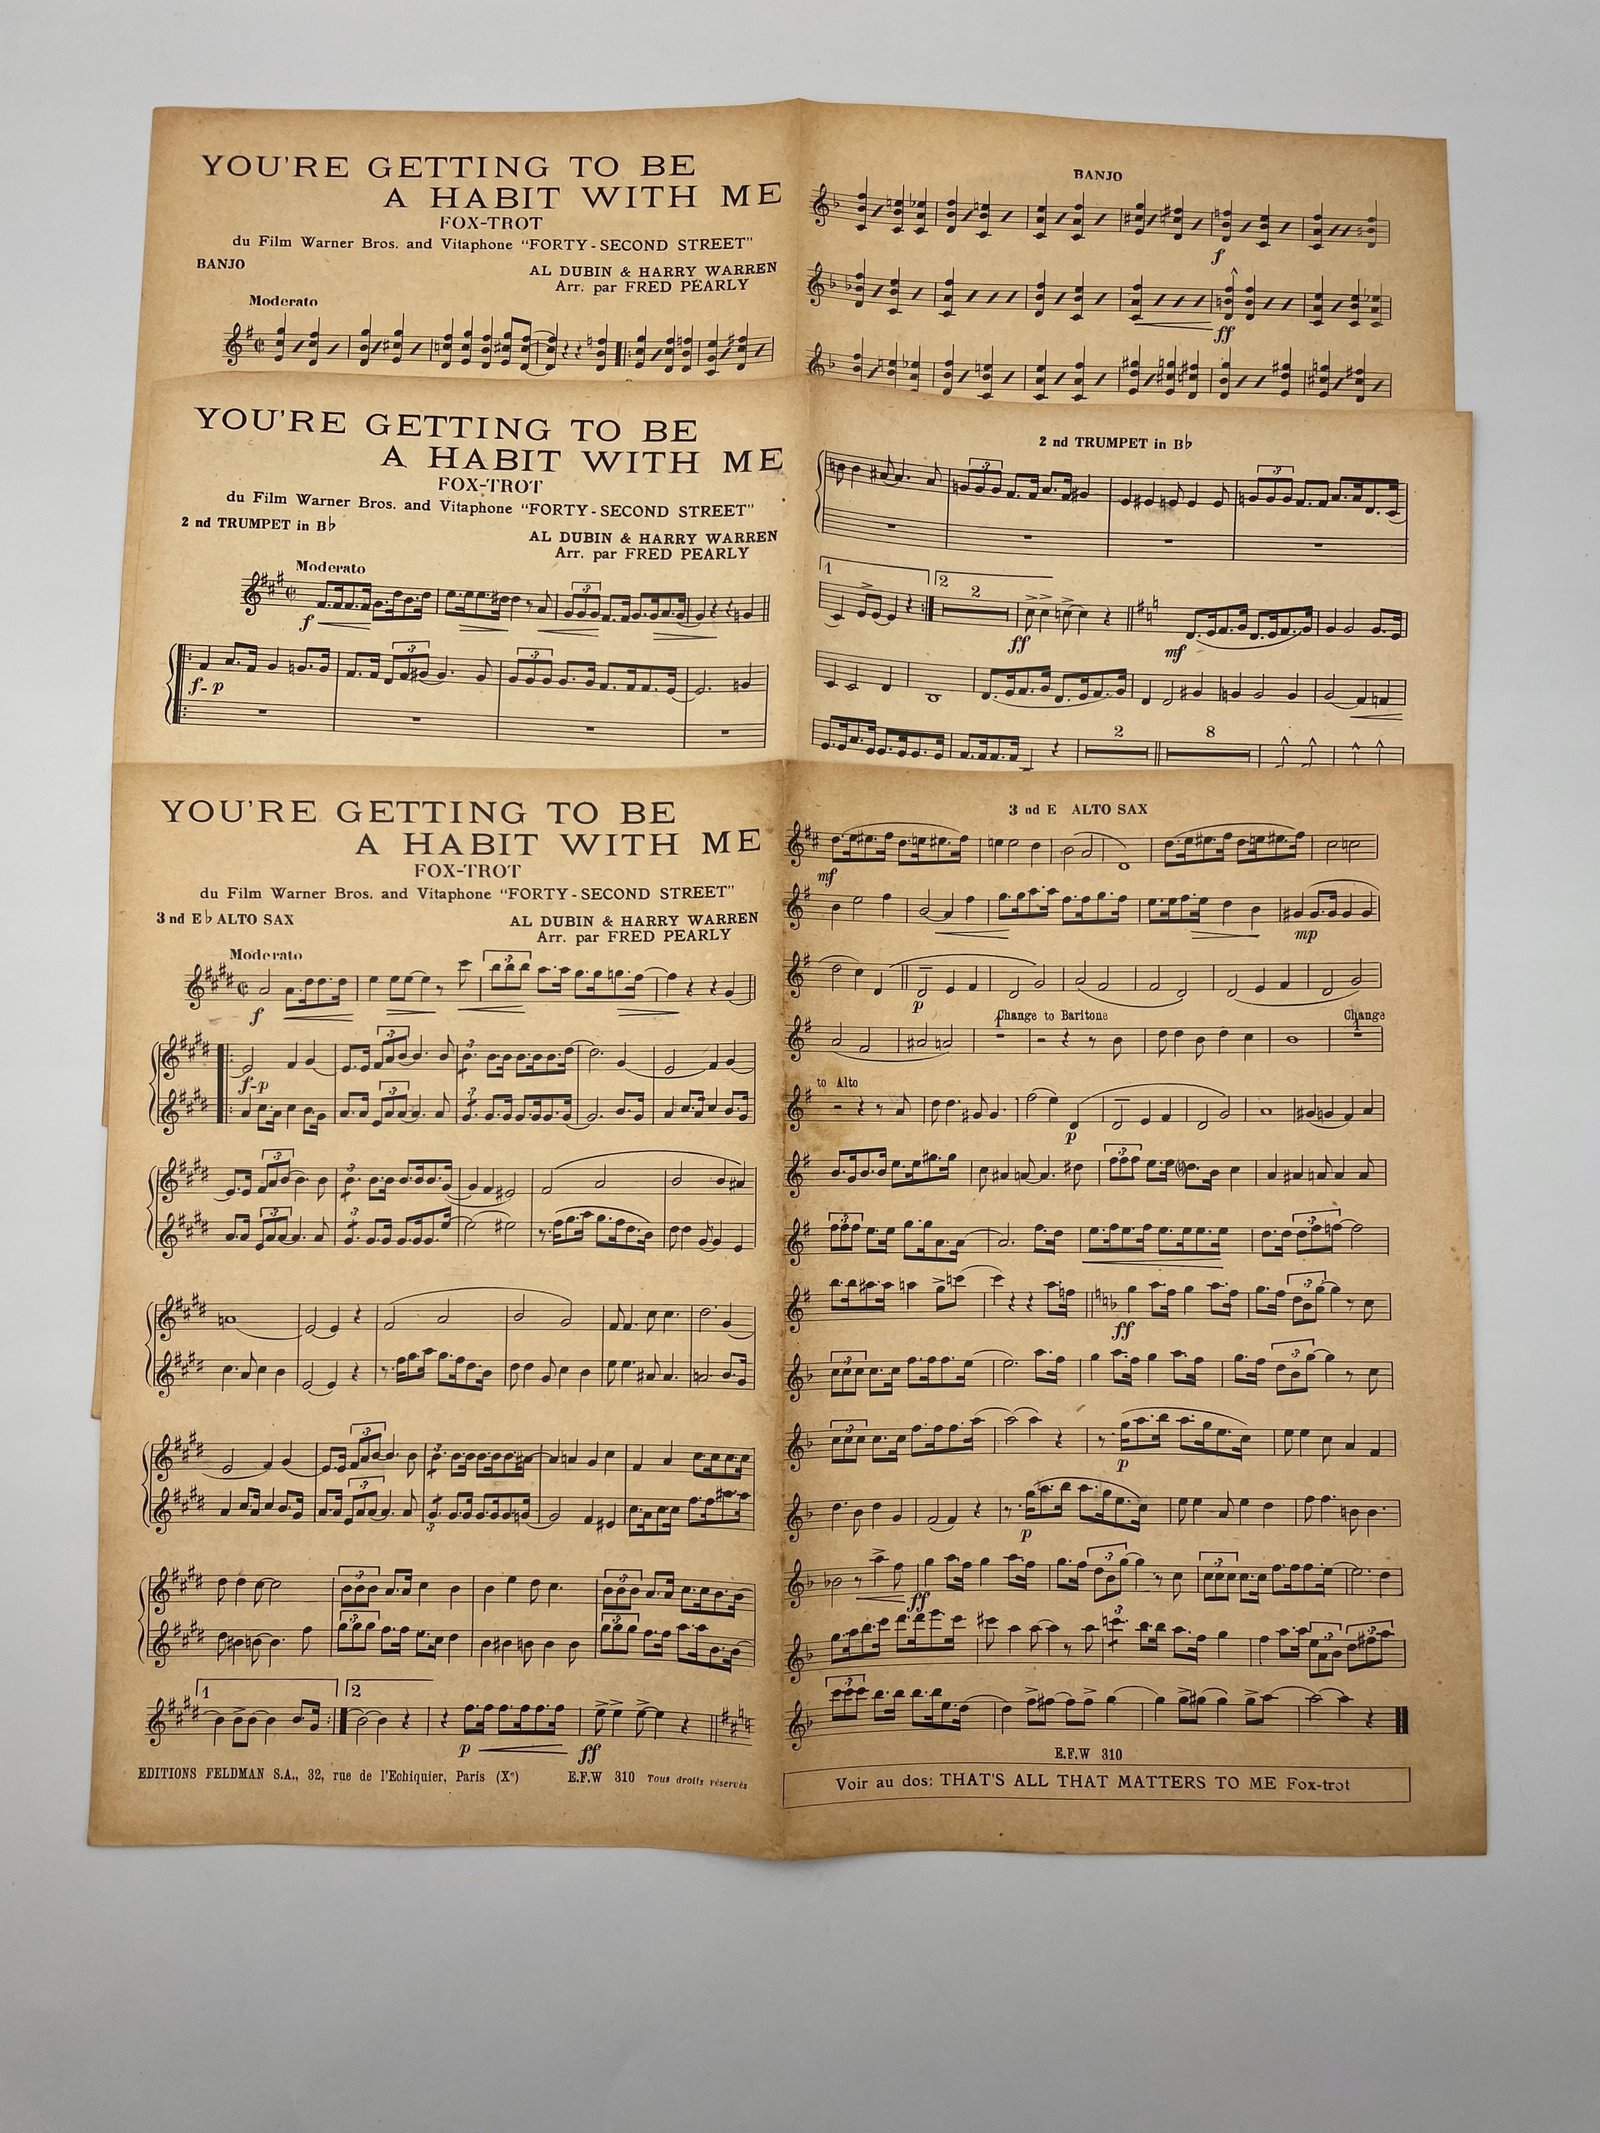 YOU'RE GETTING TO BE
A HABIT WITH ME
FOX-TROT
du Film Warner Bros. and Vitaphone "FORTY-SECOND STREET"
BANJO
AL DUBIN & HARRY WARREN
Arr. par FRED PEARLY
Moderato
BANJO
f
ff
YOU'RE GETTING TO BE
A HABIT WITH ME
FOX-TROT
du Film Warner Bros. and Vitaphone "FORTY-SECOND STREET"
2 nd TRUMPET in B♭
AL DUBIN & HARRY WARREN
Arr. par FRED PEARLY
Moderato
f
3
f-p
3
3
2 nd TRUMPET in B♭
3
3
1
2
2
ff
mf
2
8
YOU'RE GETTING TO BE
A HABIT WITH ME
FOX-TROT
du Film Warner Bros. and Vitaphone "FORTY-SECOND STREET"
3 nd E♭ ALTO SAX
AL DUBIN & HARRY WARREN
Arr. par FRED PEARLY
Moderato
f
3
3
3
f-p
3
3
3
3
3
3
3
3
3
3
3
3
3
3
1
2
p
ff
EDITIONS FELDMAN S.A., 32, rue de l'Echiquier, Paris (Xe)
E.F.W 310 Tous droits réservés
3 nd E ALTO SAX
mf
mp
p
Change to Baritone
1
Change
1
to Alto
p
3
3
3
3
ff
3
3
3
p
p
3
3
ff
3
3
3
E.F.W 310
Voir au dos: THAT'S ALL THAT MATTERS TO ME Fox-trot